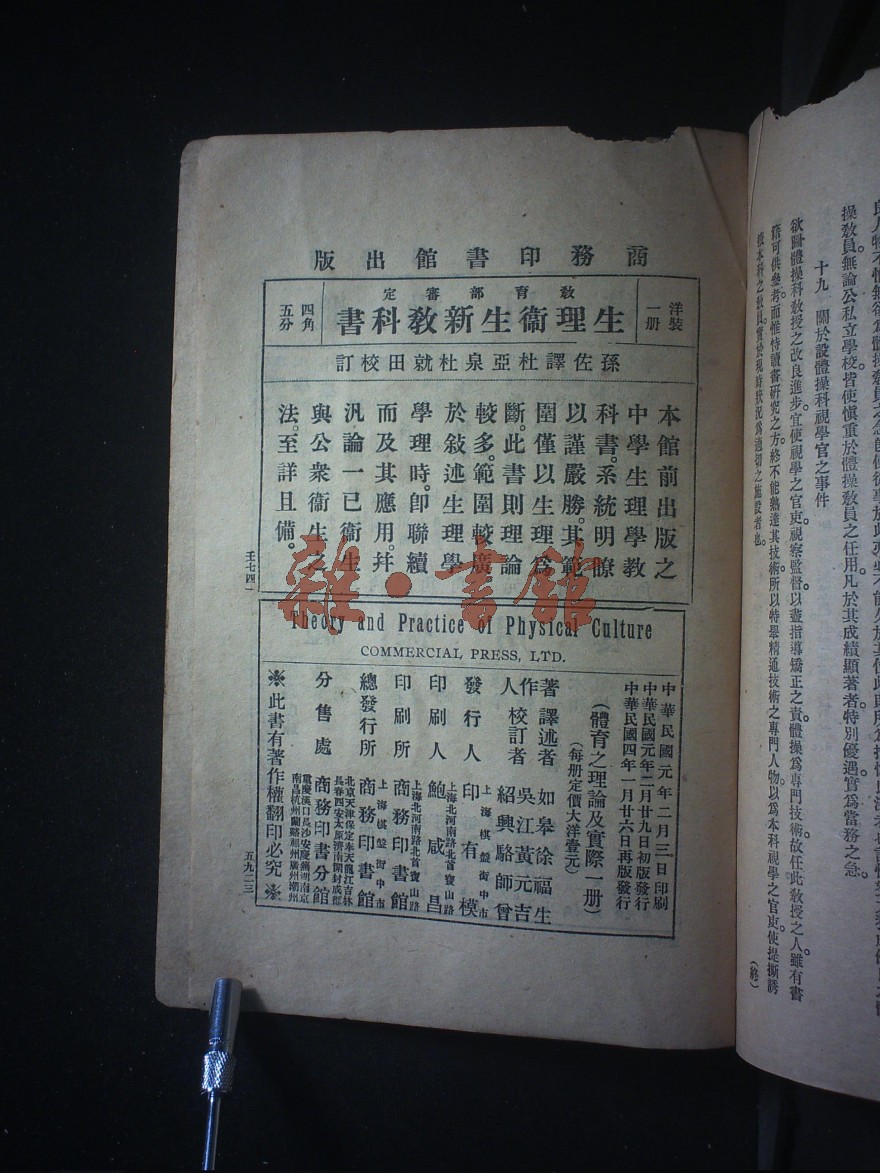 良人物不惜無欲爲體操敎員之念
操敎員無論公私立學校皆使愼重於體操敎員之任用凡於其成績顯著者特別優遇實爲當務之急。
十九 關於設體操科視學官之事件
欲圖體操科敎授之改良進步。宜使視學之官吏。視察監督。以盡指導矯正之責。體操爲專門技術。故任此敎授之人。雖有書
籍可供參考。而惟恃讀書硏究之方。終不能熟達其技術。所以特舉精通技術之專門人物。以爲本科視學之官吏。使提撕誘
掖本科之敎員。實於現時狀況爲適切之施設者也。
(終)
商務印書館出版
洋裝
一册
敎育部審定
生理衞生新敎科書
四角
五分
孫佐譯杜亞泉杜就田校訂
本館前出版之
中學生理學敎
科書。系統明瞭
以謹嚴勝。其範
圍僅以生理爲
斷。此書則理論
較多。範圍較廣
於敍述生理學
學理時。卽聯續
而及其應用。幷
汎論一已衞生
與公衆衞生之
法。至詳且備。
壬七四一
雜·書館
Theory and Practice of Physical Culture
COMMERCIAL PRESS, LTD.
中華民國元年二月三日印刷
中華民國元年二月廿九日初版發行
中華民國四年一月廿六日再版發行
(體育之理論及實際一册)
(每册定價大洋壹元)
著譯述者 如皋徐福生
作校訂者 吳江黃元吉
人 紹興駱師曾
發行人 印有模
上海棋盤街中市
印刷人 鮑咸昌
上海北河南路北首寶山路
印刷所 商務印書館
上海北河南路北首寶山路
總發行所 商務印書館
上海棋盤街中市
分售處 商務印書分館
北京天津保定奉天龍江吉林
長春西安太原濟南開封成都
重慶漢口長沙安慶蕪湖南京
南昌杭州蘭谿福州廣州潮州
※此書有著作權翻印必究※
五九二三